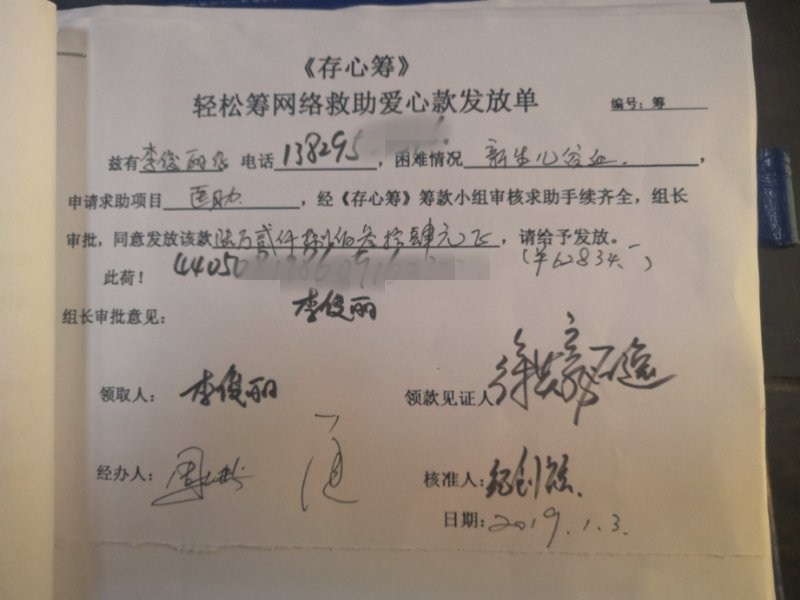 《存心筹》
轻松筹网络救助爱心款发放单
编号：筹
兹有李俊丽 电话138295，困难情况新生儿，
申请求助项目医助，经《存心筹》筹款小组审核求助手续齐全，组长
审批，同意发放该款陆万贰仟捌佰叁拾肆元正，请给予发放。
（￥62834.-）
此荷！4405
组长审批意见：李俊丽
领取人：李俊丽
领款见证人
经办人：周
核准人：
日期：2019.1.3.